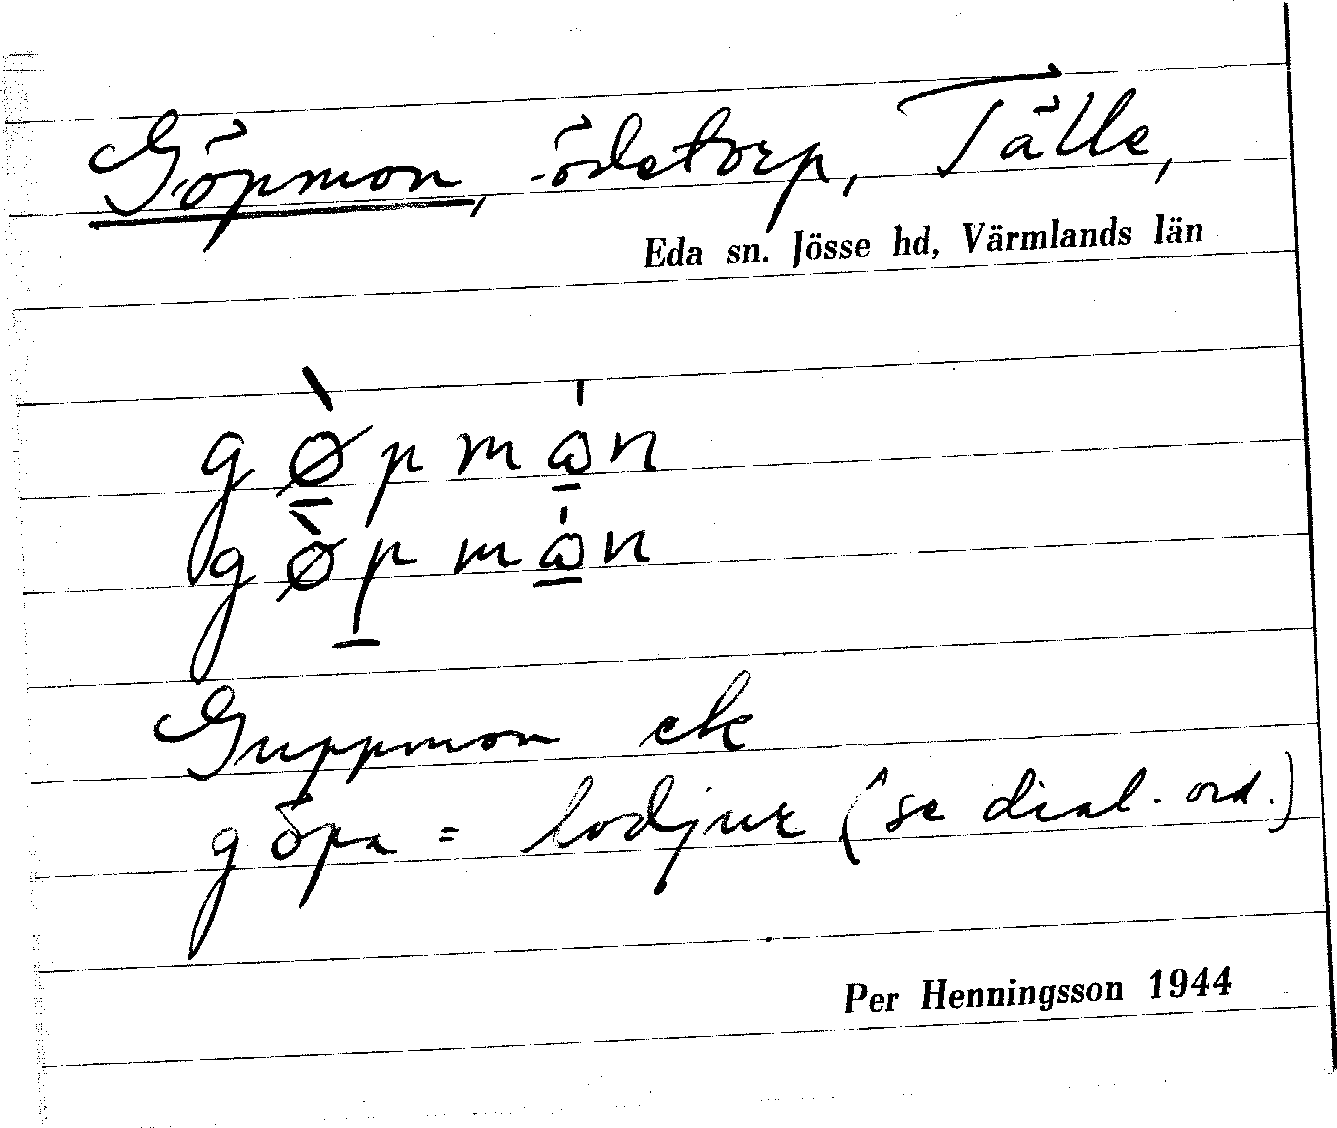 Göpmon, ödetorp, Tälle,
Eda sn. Jösse hd, Värmlands län
gø̲̀pmɷ̲̍n
gø̀p̲mɷ̲̍n
Guppmon ek
göpa = lodjur (se dial. ord.)
Per Henningsson 1944